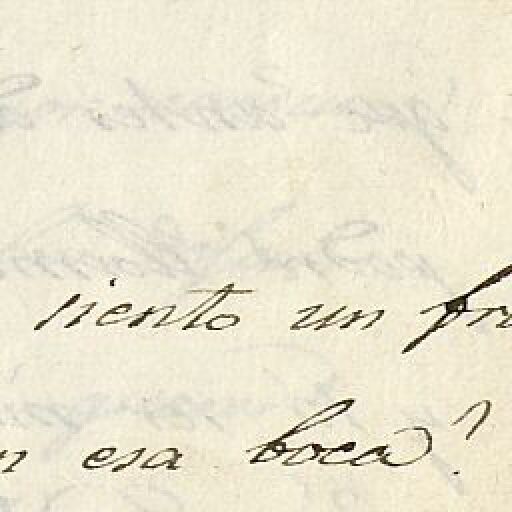 siento un fr
n esa boca?